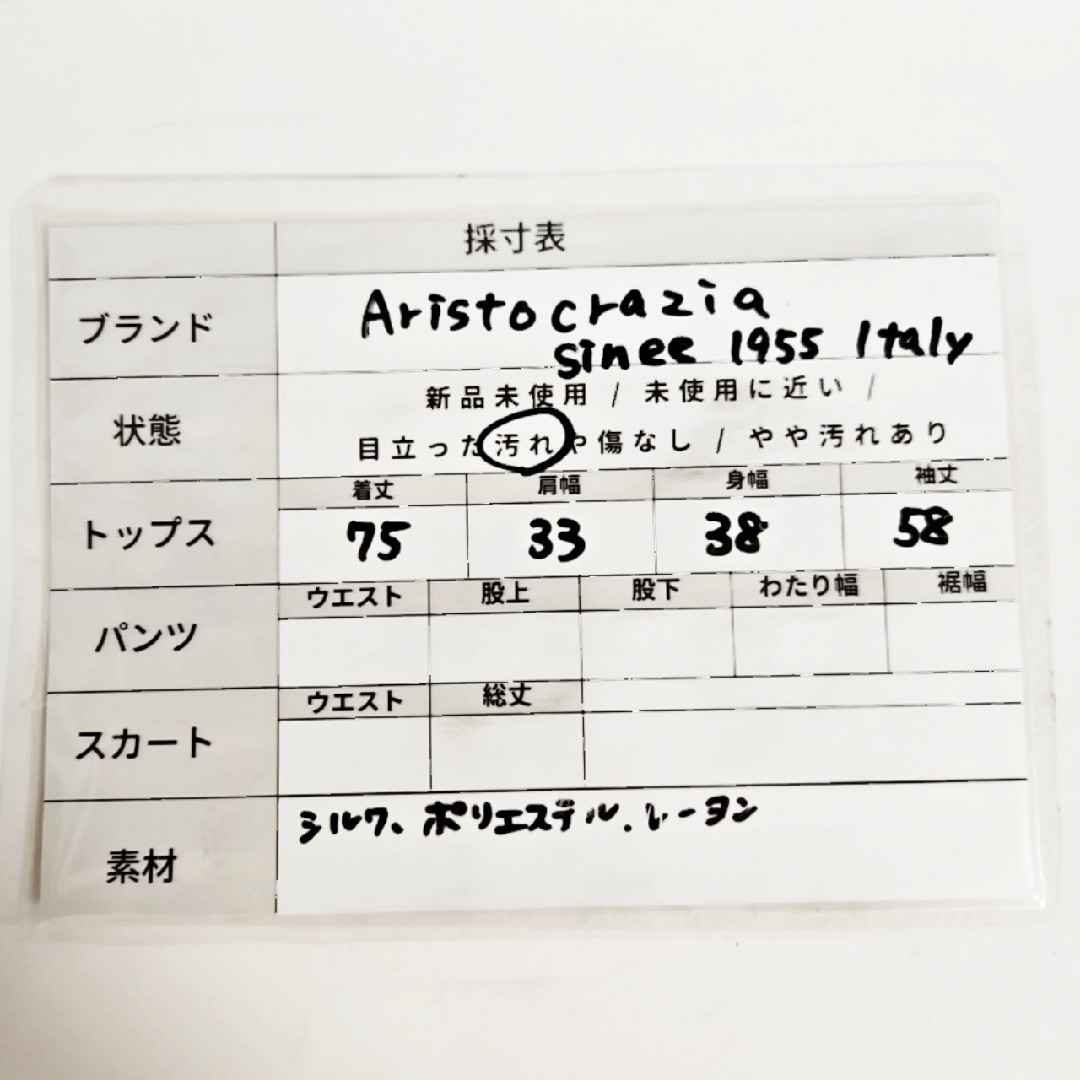 採寸表
ブランド
Aristocrazia
sinee 1955 Italy
状態
新品未使用 / 未使用に近い /
目立った汚れや傷なし / やや汚れあり
トップス
着丈 肩幅 身幅 袖丈
75 33 38 58
パンツ
ウエスト 股上 股下 わたり幅 裾幅
スカート
ウエスト 総丈
素材
シルク、ポリエステル、レーヨン